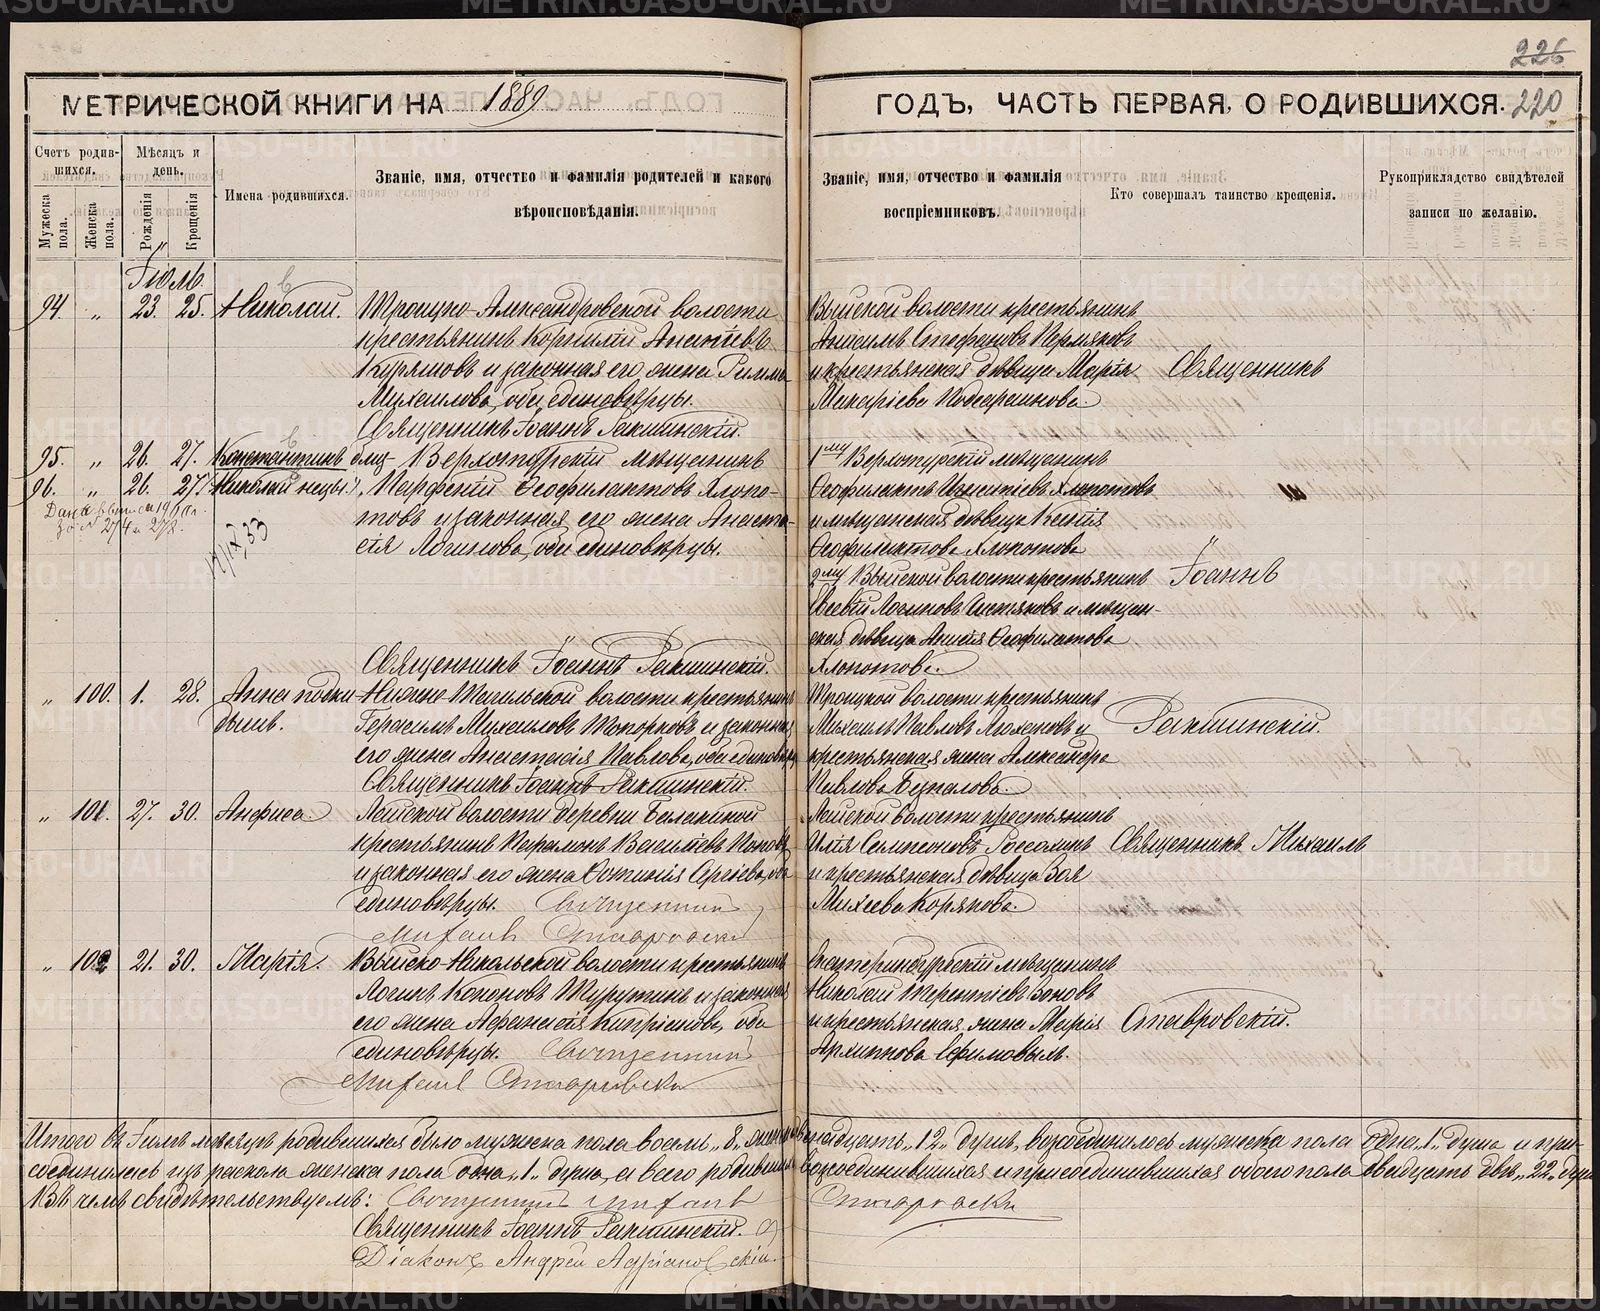 226
МЕТРИЧЕСКОЙ КНИГИ НА 1889
ГОДЪ, ЧАСТЬ ПЕРВАЯ, О РОДИВШИХСЯ. 220
Счетъ родившихся.
Мужеска пола.
Женска пола.
Мѣсяцъ и день.
Рожденія
Крещенія
Имена родившихся.
Званіе, имя, отчество и фамилія родителей и какого
вѣроисповѣданія.
Званіе, имя, отчество и фамилія
воспріемниковъ.
Кто совершалъ таинство крещенія.
Рукоприкладство свидѣтелей
записи по желанію.
Іюль.
94. „ 23. 25. Николай. Троицко-Александровской волости
крестьянинъ Корнилій
и законная его жена
Михаилова, оба единовѣрцы.
Священникъ Іоаннъ
Выйской волости крестьянинъ
Анисимъ Стефановъ Пермяковъ
и крестьянская дѣвица Марія
Макаріева
Священникъ
95. „ 26. 27. Константинъ близ- Верхотурскій мѣщанинъ
96. „ 26. 27. Николай нецы. Парфеній Ѳеофилактовъ Хлопо-
товъ и законная его жена Анаста-
сія Логинова, оба единовѣрцы.
17/IX 33
Священникъ Іоаннъ
1му Верхотурскій мѣщанинъ
Ѳеофилактъ Хлопотовъ
и мѣщанская дѣвица Ксенія
Ѳеофилактова Хлопотова
2му Выйской волости крестьянинъ
Логиновъ и мѣщан-
ская дѣвица Ѳеофилактова
Хлопотова.
Іоаннъ
„ 100. 1. 28. Анна подки-
дышъ.
Нижне-Тагильской волости крестьянинъ
Герасимъ Михаиловъ Топорковъ и законная
его жена Анастасія Павлова, оба единовѣрцы
Священникъ Іоаннъ
Троицкой волости крестьянинъ
Михаилъ Павловъ и
крестьянская жена Александра
Павлова
„ 101. 27. 30. Анфиса. Лайской волости деревни
крестьянинъ Парамонъ Васильевъ Поповъ
и законная его жена Фотинія Сергіева, оба
единовѣрцы. Священникъ
Михаилъ Ставровскій
Лайской волости крестьянинъ
Илія Сампсоновъ
и крестьянская дѣвица Зоя
Михеева Корякова.
Священникъ Михаилъ
„ 102 21. 30. Марія. Выйско-Никольской волости крестьянинъ
Логинъ Кононовъ и законная
его жена Афанасія Кипріанова, оба
единовѣрцы. Священникъ
Михаилъ Ставровскій
Екатеринбургскій мѣщанинъ
Николай Терентіевъ Зоновъ
и крестьянская жена Марія
Архиппова Ефимовыхъ.
Ставровскій.
Итого въ Іюлѣ мѣсяцѣ родившихся было мужеска пола восемь „8„ женска двѣнадцать „12„ душъ, возсоединилось мужеска пола одна „1„ душа и при-
соединилось изъ раскола женска пола одна „1„ душа, а всего родившихся возсоединившихся и присоединившихся обоего пола двадцать двѣ „22„ души
Въ чемъ свидѣтельствуемъ: Священникъ Михаилъ Ставровскій
Священникъ Іоаннъ
Діаконъ Андрей Адріановскій.
METRIKI.GASO-URAL.RU